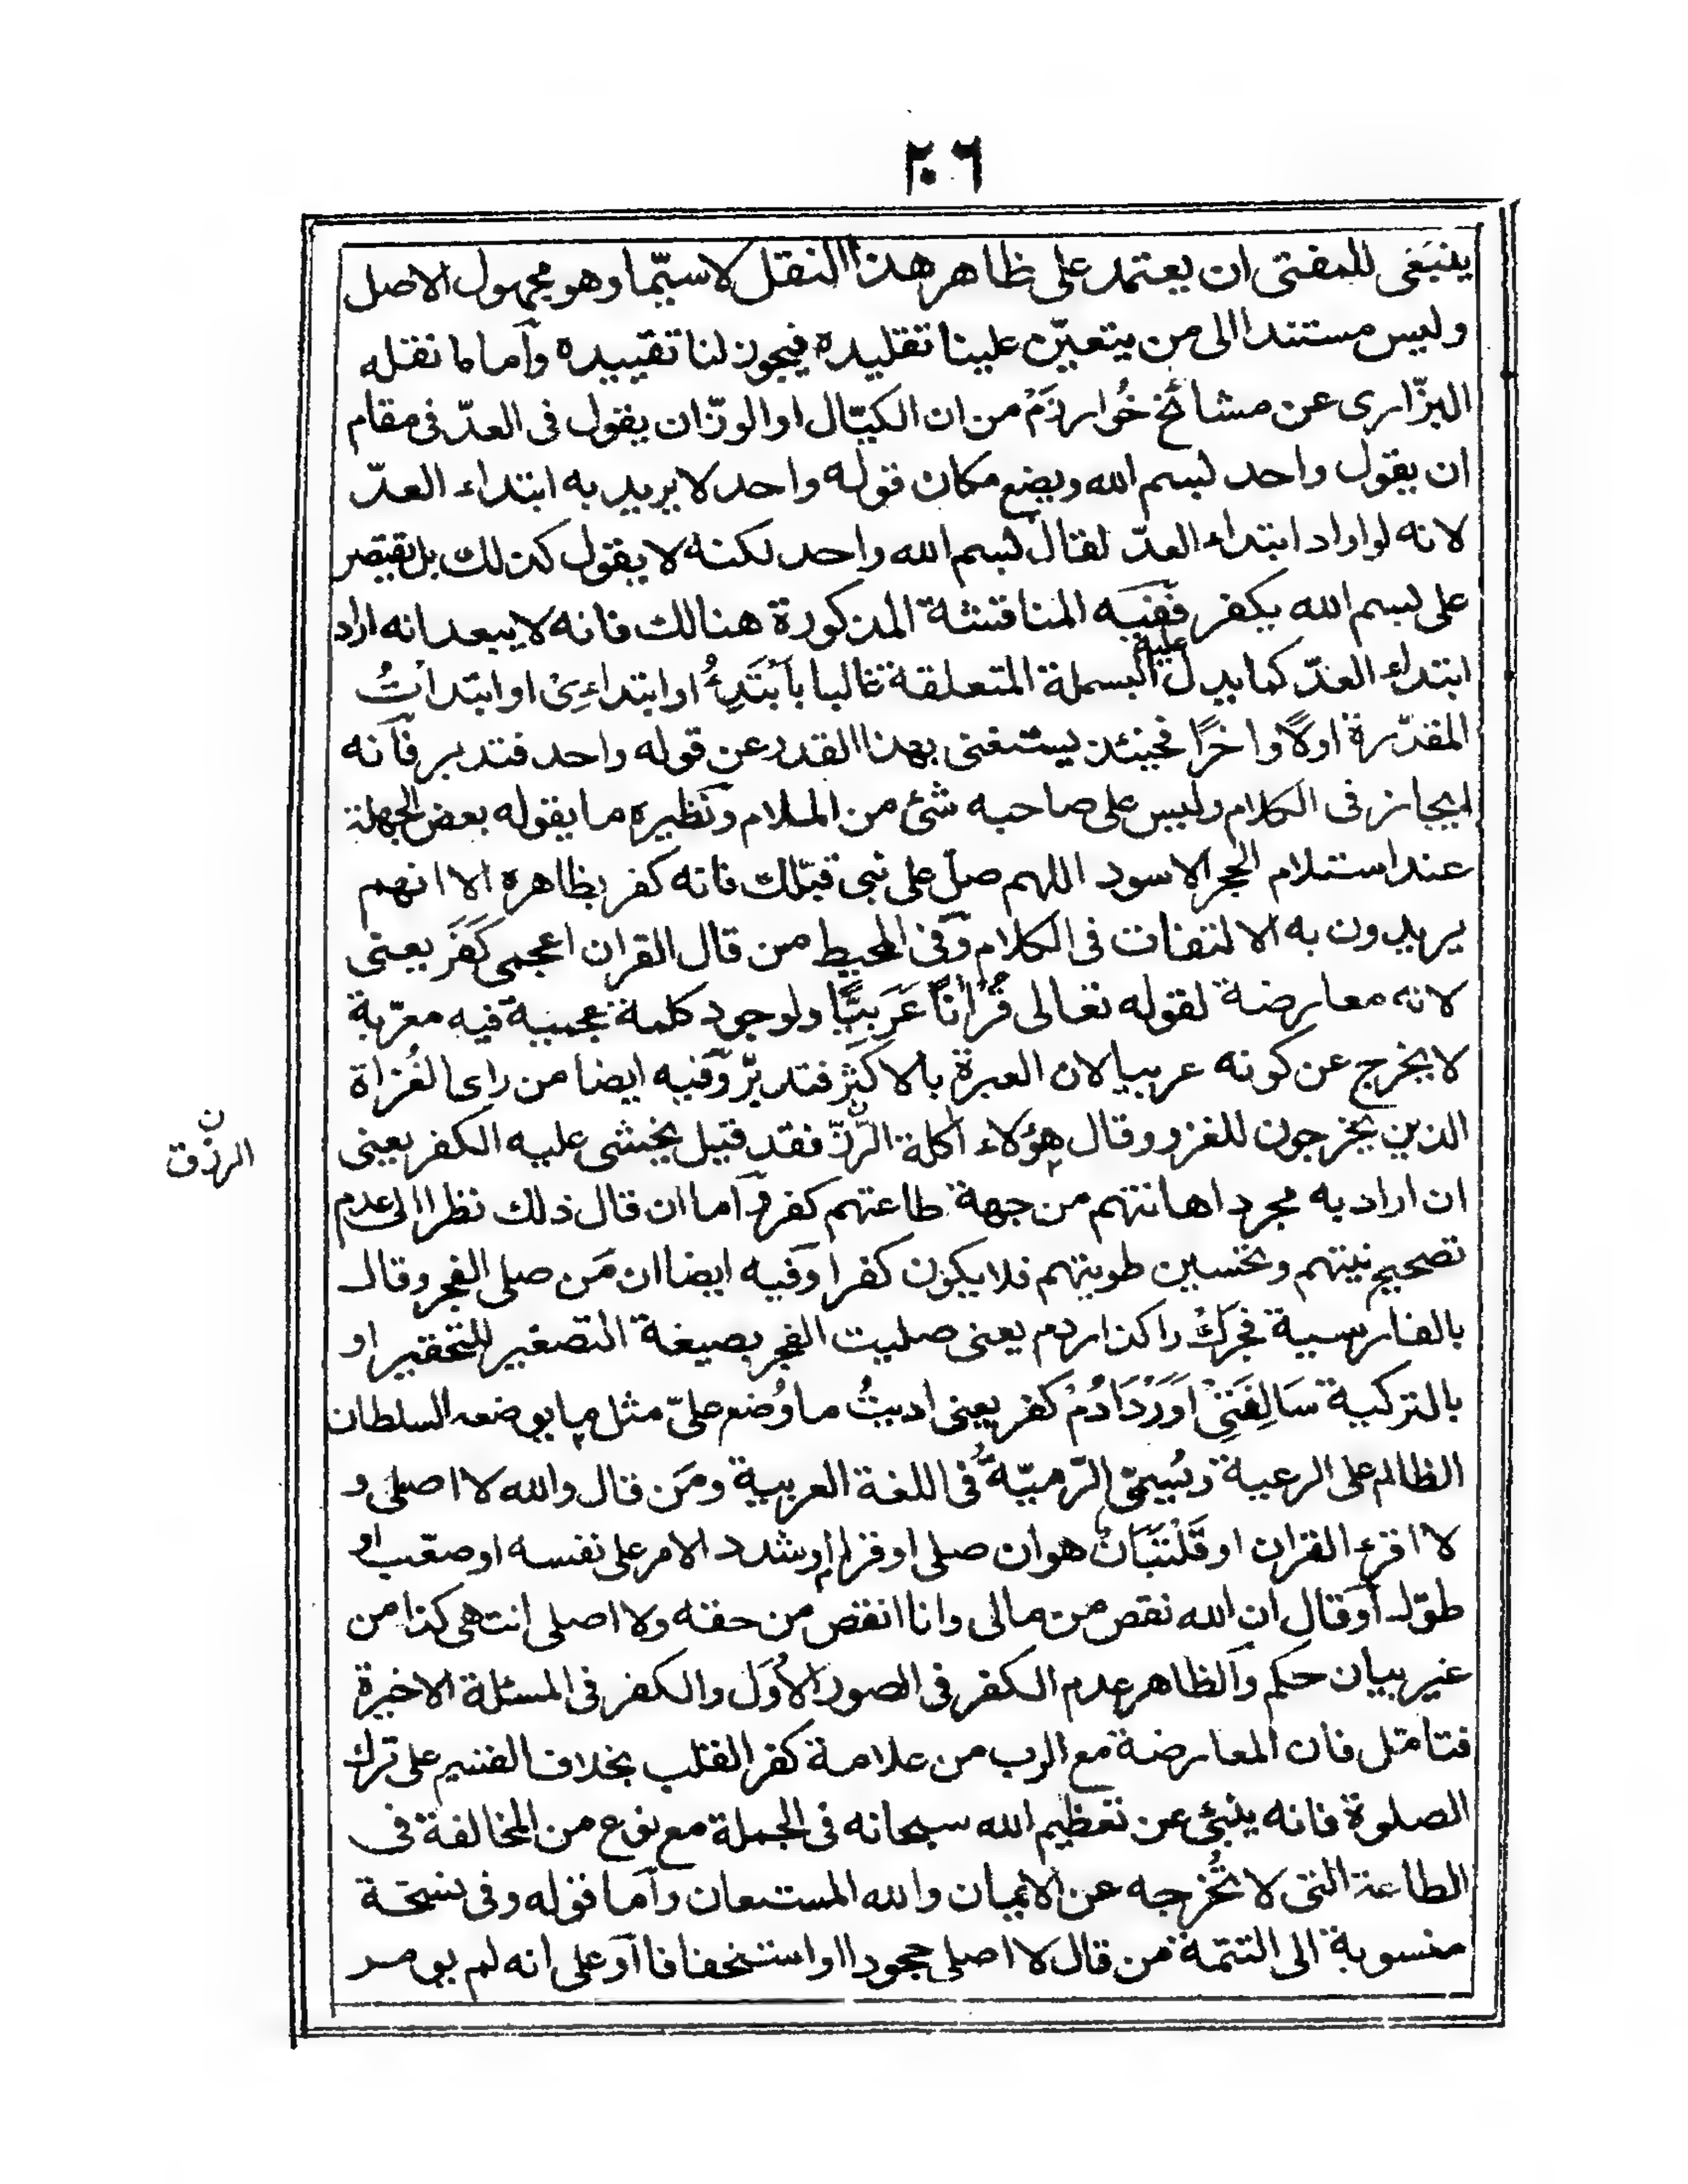 ٢٠٦
ينبغى للمفتى ان يعتمد على ظاهر هذا النقل لا سيّما وهو مجهول الاصل
وليس مستندا الى من يتعيّن علينا تقليده فيجوز لنا تقييده وآما ما نقله
البزّازى عن مشائخ خُوارزَمْ من ان الكيّال او الوزّان يقول فى العدّ فى مقام
ان يقول واحد بسم الله ويضع مكان قوله واحد لا يريد به ابتداء العدّ
لانه لو اراد ابتداء العدّ لقال بسم الله واحد لكنه لا يقول كذلك بل يقتصر
على بسم الله يكفر ففيه المناقشة المذكورة هنالك فانه لا يبعد انه اراد
ابتداء العدّ كما يدل عليه البسملة المتعلقة غالبا بأبتَدِئُ او ابتداءِىْ او ابتدأتُ
المقدّرة اولًا واخرًا فحينئذ يستغنى بهذا القدر عن قوله واحد فتدبر فآنه
ايجاز فى الكلام وليس على صاحبه شئ من الملام ونظيره ما يقوله بعض الجهلة
عند استلام الحجر الاسود اللهم صل على نبى قبّلك فانه كفر بظاهره الا انهم
يريدون به الالتفات فى الكلام وفى المحيط من قال القران اعجمى كَفَرَ يعنى
لانه معارضة لقوله تعالى قُرْانًا عَرَبِيًّا ولوجود كلمة عجمية فيه معرّبة
لا يخرج عن كونه عربيا لان العبرة بالاكثر فتدبّر وفيه ايضا من راى الغُزاة
الذين يخرجون للغزو وقال هؤلاء اكلة الرَّزّ فقد قيل يخشى عليه الكفر يعنى
ن
الرزق
ان اراد به مجرد اهانتهم من جهة طاعتهم كفر وآما ان قال ذلك نظرا الى عدم
تصحيح نيتهم وتحسين طويتهم فلا يكون كفرا وفيه ايضا ان مَن صلى الفجر وقال
بالفارسية فجرَكْ را كذاردم يعنى صليت الفجر بصيغة التصغير للتحقير او
بالتركية سَالِغَنِىْ اَوَرْدَادُمْ كفر يعنى اديتُ ما وُضع علىّ مثل ما يوضعه السلطان
الظالم على الرعية ويُسمّى الرّميّةُ فى اللغة العربية ومَن قال والله لا اصلى و
لا اقرء القران او قَلْتَبَانْ هو ان صلى او قرا او شدد الامر على نفسه او صعّب او
طوّل آوقال ان الله نقص من مالى وانا انقص من حقه ولا اصلى انتهى كذا من
غير بيان حكم وآلظاهر عدم الكفر فى الصور الاُوَل والكفر فى المسئلة الاخيرة
فتامّل فان المعارضة مع الرب من علامة كفر القلب بخلاف القسم على ترك
الصلوة فانه ينبئ عن تعظيم الله سبحانه فى الجملة مع نوع من المخالفة فى
الطاعة التى لا تُخرجه عن الايمان والله المستعان وآما قوله وفى نسخة
منسوبة الى التتمّة من قال لا اصلى جحودا او استخفافا آو على انه لم يومر